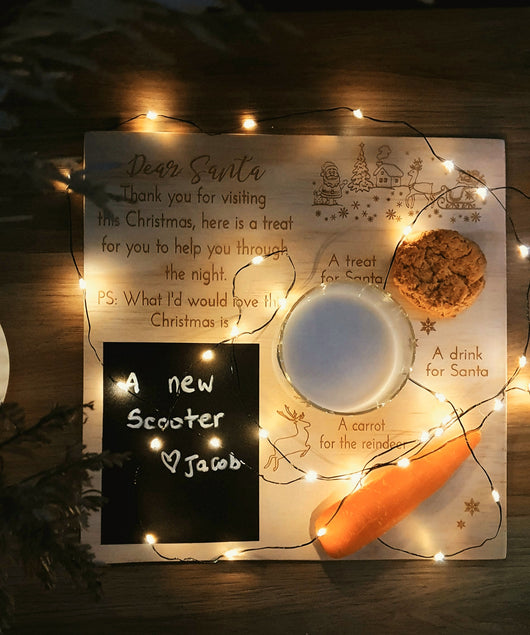 Dear Santa
Thank you for visiting
this Christmas, here is a treat
for you to help you through
the night.
PS: What I'd would love this
Christmas is
A new
Scooter
♡Jacob
A treat
for Santa
A drink
for Santa
A carrot
for the reindeer